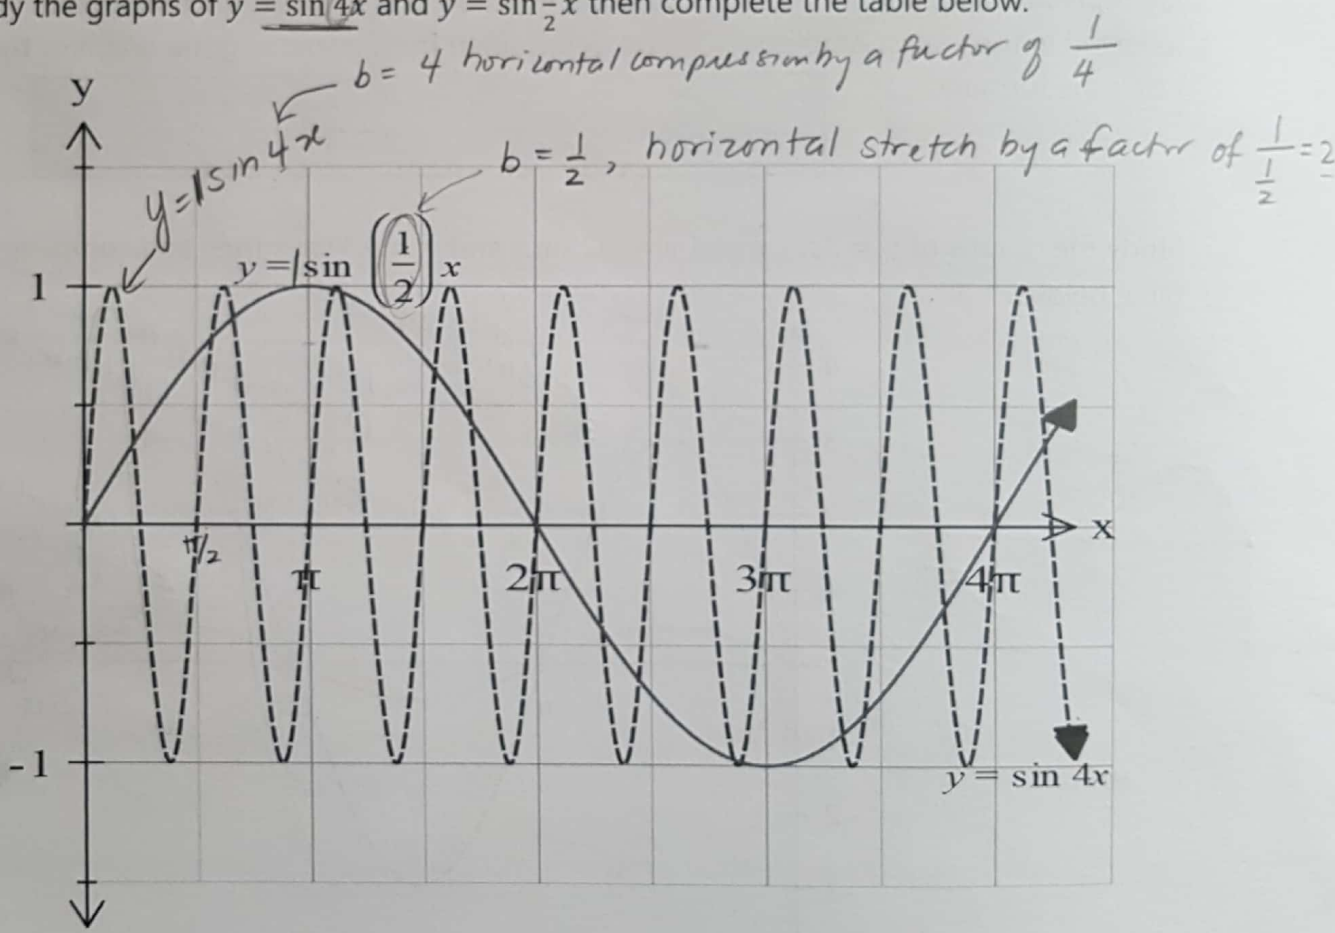 dy the graphs of y = sin 4x and y = sin 1/2 x then complete the table below.
b = 4 horizontal compression by a factor of 1/4
y
y = 1 sin 4x
b = 1/2, horizontal stretch by a factor of 1/(1/2) = 2
y = 1 sin (1/2) x
1
x
π/2
π 2π 3π 4π
-1
y = sin 4x